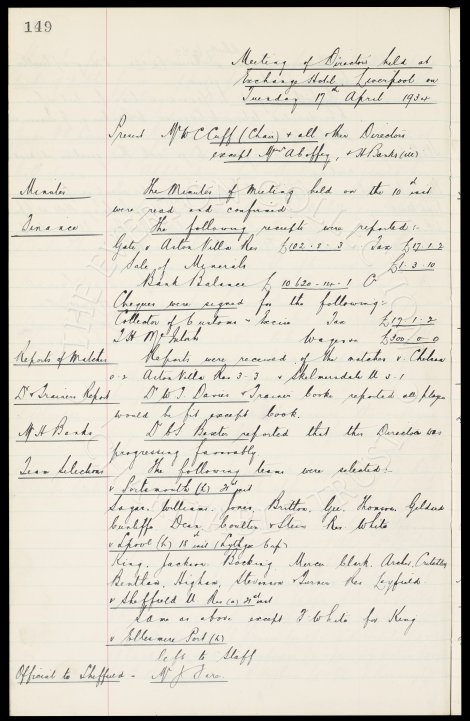 149
Meeting of Directors held at
Exchange Hotel, Liverpool on
Tuesday 17th April 1934
Present Mr W C Cuff (Chair) & all other Directors
except Messrs & H Banks (ill)
Minutes The Minutes of Meeting held on the 10th inst
were read and confirmed
Finance The following receipts were reported:-
Gate v Aston Villa Res £102-8-3 Tax £17-1-2
Sale of Minerals £1-3-10
Bank Balance £10620-14-1
Cheques were signed for the following:-
Collector of Customs & Excise Tax £17/1/2
T H McIntosh Wages £300/0/0
Reports of Matches Reports were received of the matches v Chelsea
0-2 Aston Villa Res 3-3 & Skelmersdale U 5-1
Dr & Trainers Report Dr W T Davies & Trainer Cooke reported all players
would be fit except Cook.
Mr H Banks Dr C S Baxter reported that this Director was
progressing favorably
Team Selections The following teams were selected:-
v Portsmouth (h) 21st inst
Sagar, Williams, Jones, Britton, Gee, Thomson, Geldard
Cunliffe, Dean, Coulter & Stein Res White
v L'pool (h) 18th inst (Lythgoe Cup)
King, Jackson, Bocking, Mercer, Clark, Archer, Critchley
Bentham, Higham, Stevenson & Turner Res Leyfield
v Sheffield U Res (a) 21st inst
Same as above except T White for King
v Ellesmere Port (h)
left to Staff
Official to Sheffield - Mr J